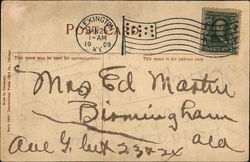 POST CARD
LEXINGTON
1-AM
1909
KY.
This space may be used for correspondence
This space is for address only
Mrs Ed Martin
Birmingham
Ala
Ave G. bet 23 & 24